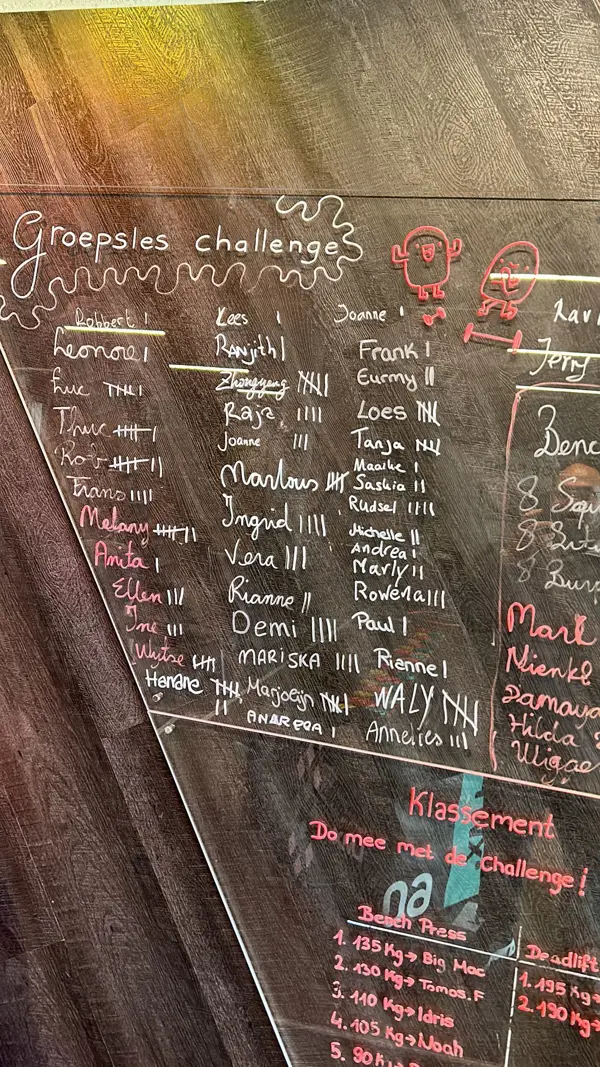 Groepsles challenge
Robbert I
Leonore I
Luc IIII I
Thuc IIII
Rob IIII II
Frans IIII
Melany IIII II
Anita I
Ellen III
Ine III
Wytse IIII
Hanane IIII II
Kees I
Ranjith I
Zhongyang IIII
Raja IIII
Joanne III
Marlous IIII
Ingrid IIII
Vera III
Rianne II
Demi IIII
MARISKA IIII
Marjolijn IIII I
ANDREA I
Joanne I
Frank I
Eurmy II
Loes IIII
Tanja IIII
Maaike I
Saskia II
Rudsel IIII
Michelle II
Andrea I
Marly II
Rowena III
Paul I
Rianne I
WALY IIII
Annelies III
Jerry
Benc
8 Squ
8
8 Burp
Mark
Nienke
Damaya
Hilda
Klassement
Do mee met de challenge!
Bench Press
1. 135 Kg → Big Mac
2. 130 Kg → Tomos.F
3. 110 Kg → Idris
4. 105 Kg → Noah
5. 90 Kg →
Deadlift
1. 195 Kg →
2. 190 Kg →
na